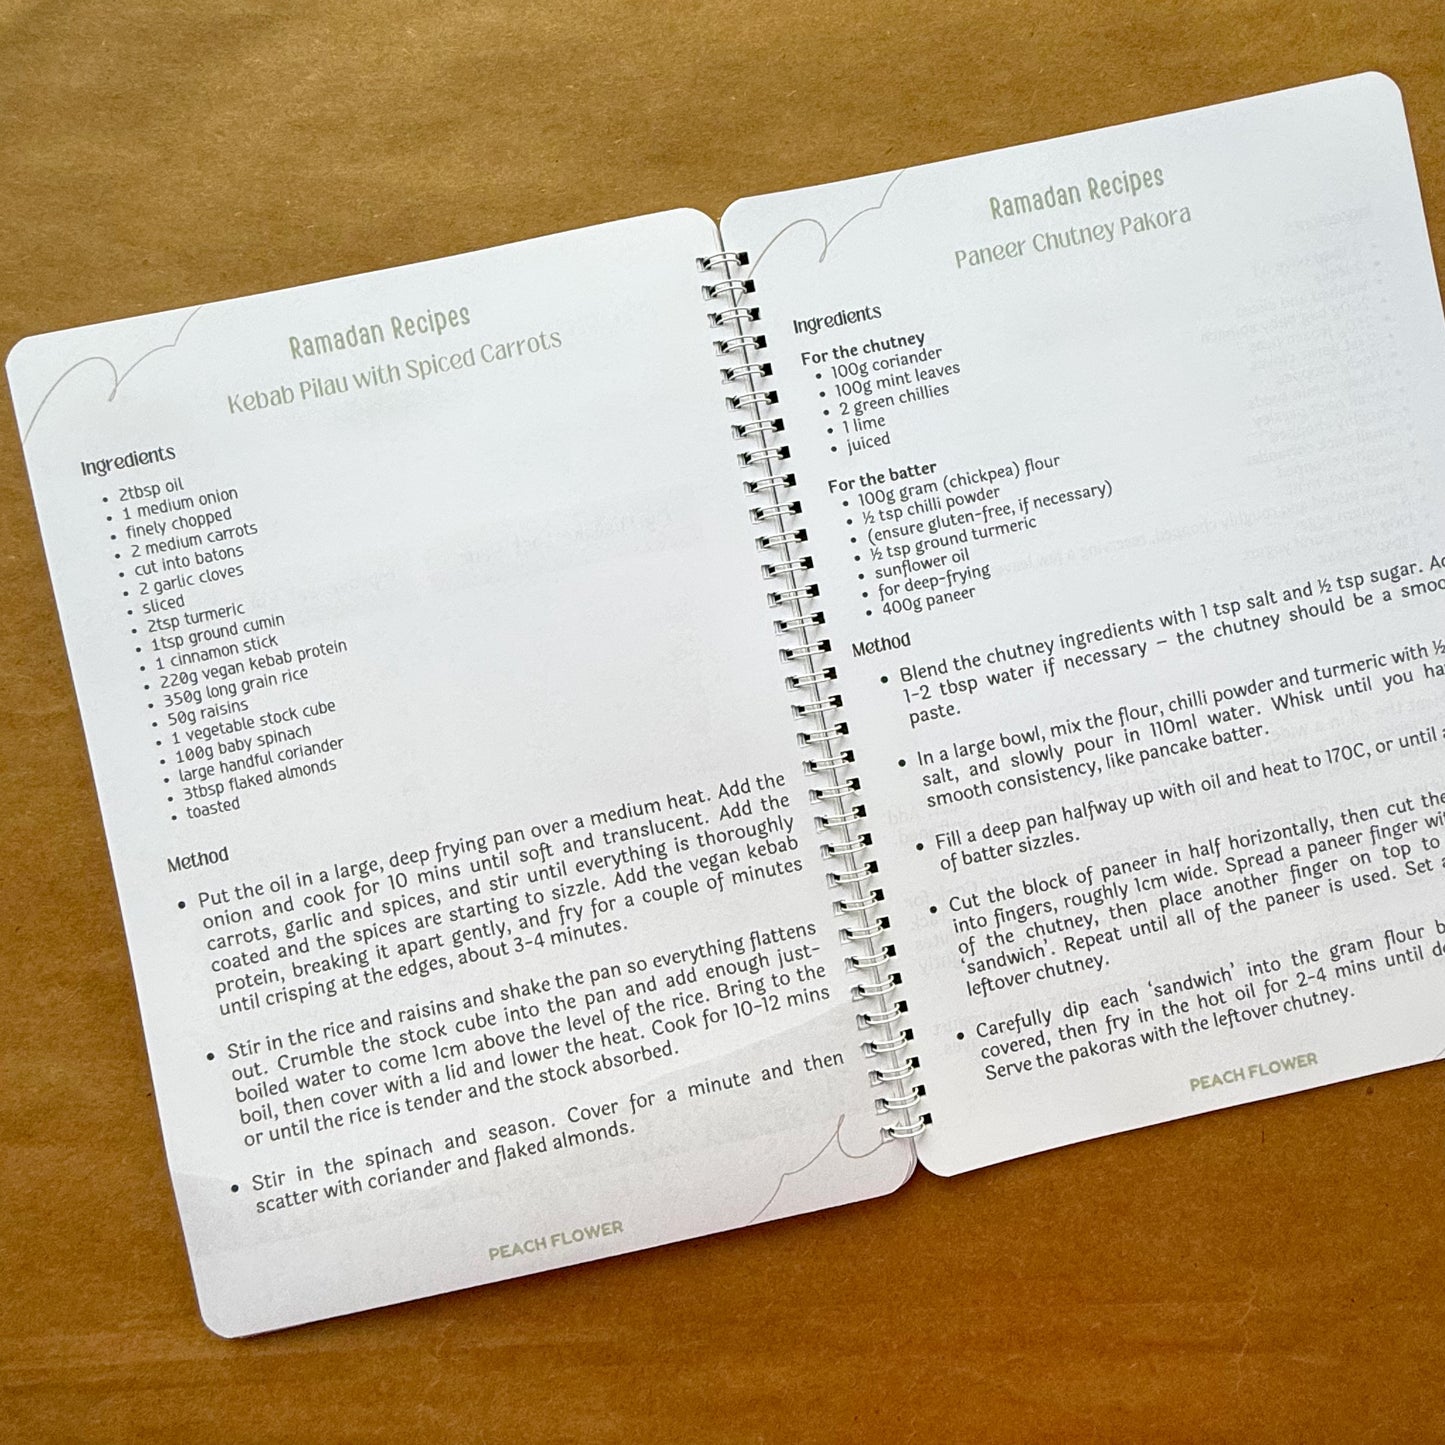 Ramadan Recipes
Kebab Pilau with Spiced Carrots
Ingredients
• 2tbsp oil
• 1 medium onion
• finely chopped
• 2 medium carrots
• cut into batons
• 2 garlic cloves
• sliced
• 2tsp turmeric
• 1tsp ground cumin
• 1 cinnamon stick
• 220g vegan kebab protein
• 350g long grain rice
• 50g raisins
• 1 vegetable stock cube
• 100g baby spinach
• large handful coriander
• 3tbsp flaked almonds
• toasted
Method
• Put the oil in a large, deep frying pan over a medium heat. Add the
onion and cook for 10 mins until soft and translucent. Add the
carrots, garlic and spices, and stir until everything is thoroughly
coated and the spices are starting to sizzle. Add the vegan kebab
protein, breaking it apart gently, and fry for a couple of minutes
until crisping at the edges, about 3-4 minutes.
• Stir in the rice and raisins and shake the pan so everything flattens
out. Crumble the stock cube into the pan and add enough just-
boiled water to come 1cm above the level of the rice. Bring to the
boil, then cover with a lid and lower the heat. Cook for 10-12 mins
or until the rice is tender and the stock absorbed.
• Stir in the spinach and season. Cover for a minute and then
scatter with coriander and flaked almonds.
PEACH FLOWER
Ramadan Recipes
Paneer Chutney Pakora
Ingredients
For the chutney
• 100g coriander
• 100g mint leaves
• 2 green chillies
• 1 lime
• juiced
For the batter
• 100g gram (chickpea) flour
• ½ tsp chilli powder
• (ensure gluten-free, if necessary)
• ½ tsp ground turmeric
• sunflower oil
• for deep-frying
• 400g paneer
Method
• Blend the chutney ingredients with 1 tsp salt and ½ tsp sugar.
1-2 tbsp water if necessary – the chutney should be a
paste.
• In a large bowl, mix the flour, chilli powder and turmeric with ½
salt, and slowly pour in 110ml water. Whisk until you
smooth consistency, like pancake batter.
• Fill a deep pan halfway up with oil and heat to 170C, or until
of batter sizzles.
• Cut the block of paneer in half horizontally, then cut the
into fingers, roughly 1cm wide. Spread a paneer finger
of the chutney, then place another finger on top to
'sandwich'. Repeat until all of the paneer is used. Set
leftover chutney.
• Carefully dip each 'sandwich' into the gram flour
covered, then fry in the hot oil for 2-4 mins until
Serve the pakoras with the leftover chutney.
PEACH FLOWER